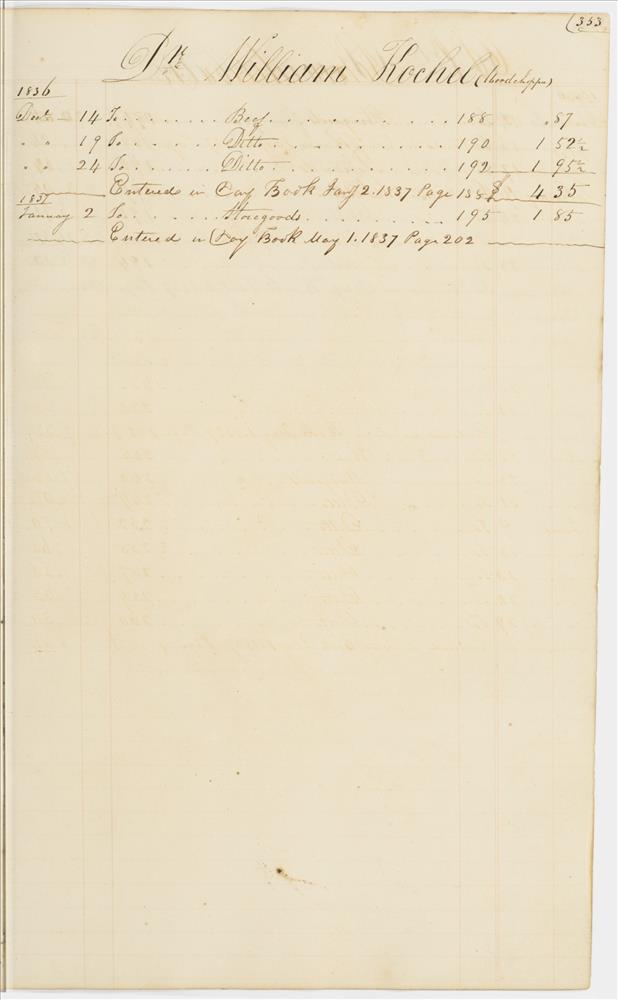 353
Dr. William Kochel (Woodchopper)
1836
Decr 14 To . . . . . . . Beef . . . . . . . . . . . 188 " 87
" " 19 To . . . . . . Ditto . . . . . . . . . . . 190 1 52½
" " 24 To . . . . . . Ditto . . . . . . . . . . . 192 1 95½
Entered in Day Book Jany 2. 1837 Page $ 4 35
1837
January 2 To . . . . . . Storegoods . . . . . . . . . 195 1 85
Entered in Day Book May 1. 1837 Page 202